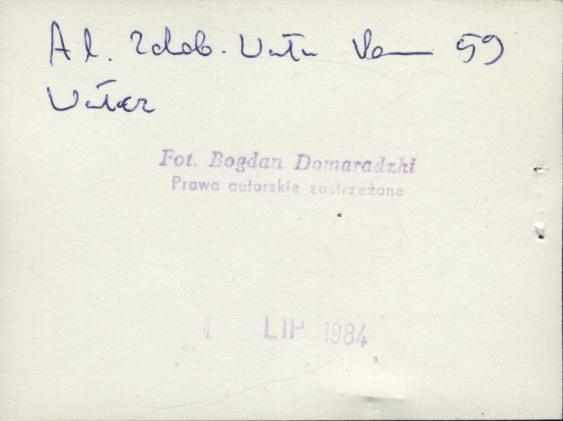 Al. Zdob. Wału Pom 59
Wałcz
Fot. Bogdan Domaradzki
Prawa autorskie zastrzeżone
LIP 1984